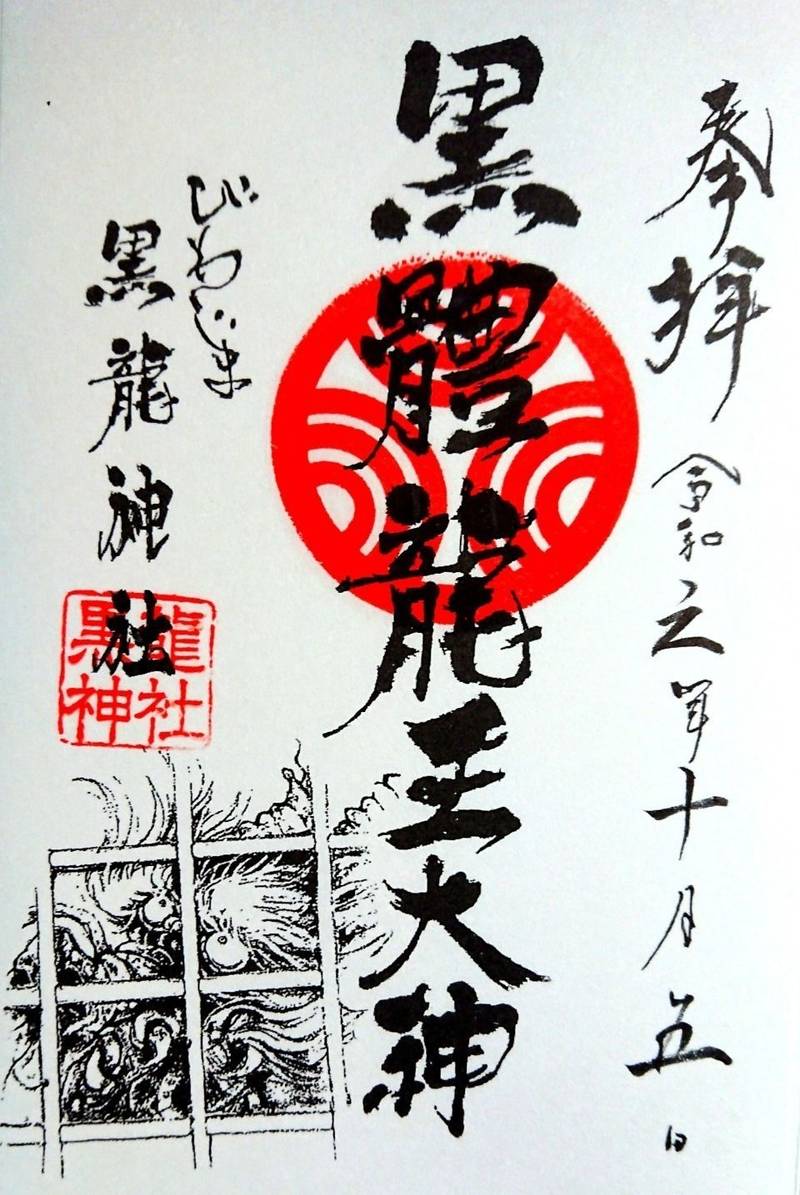 奉拝 令和元年十月五日
黒體龍王大神
びわじま
黒龍神社
黒龍
神社